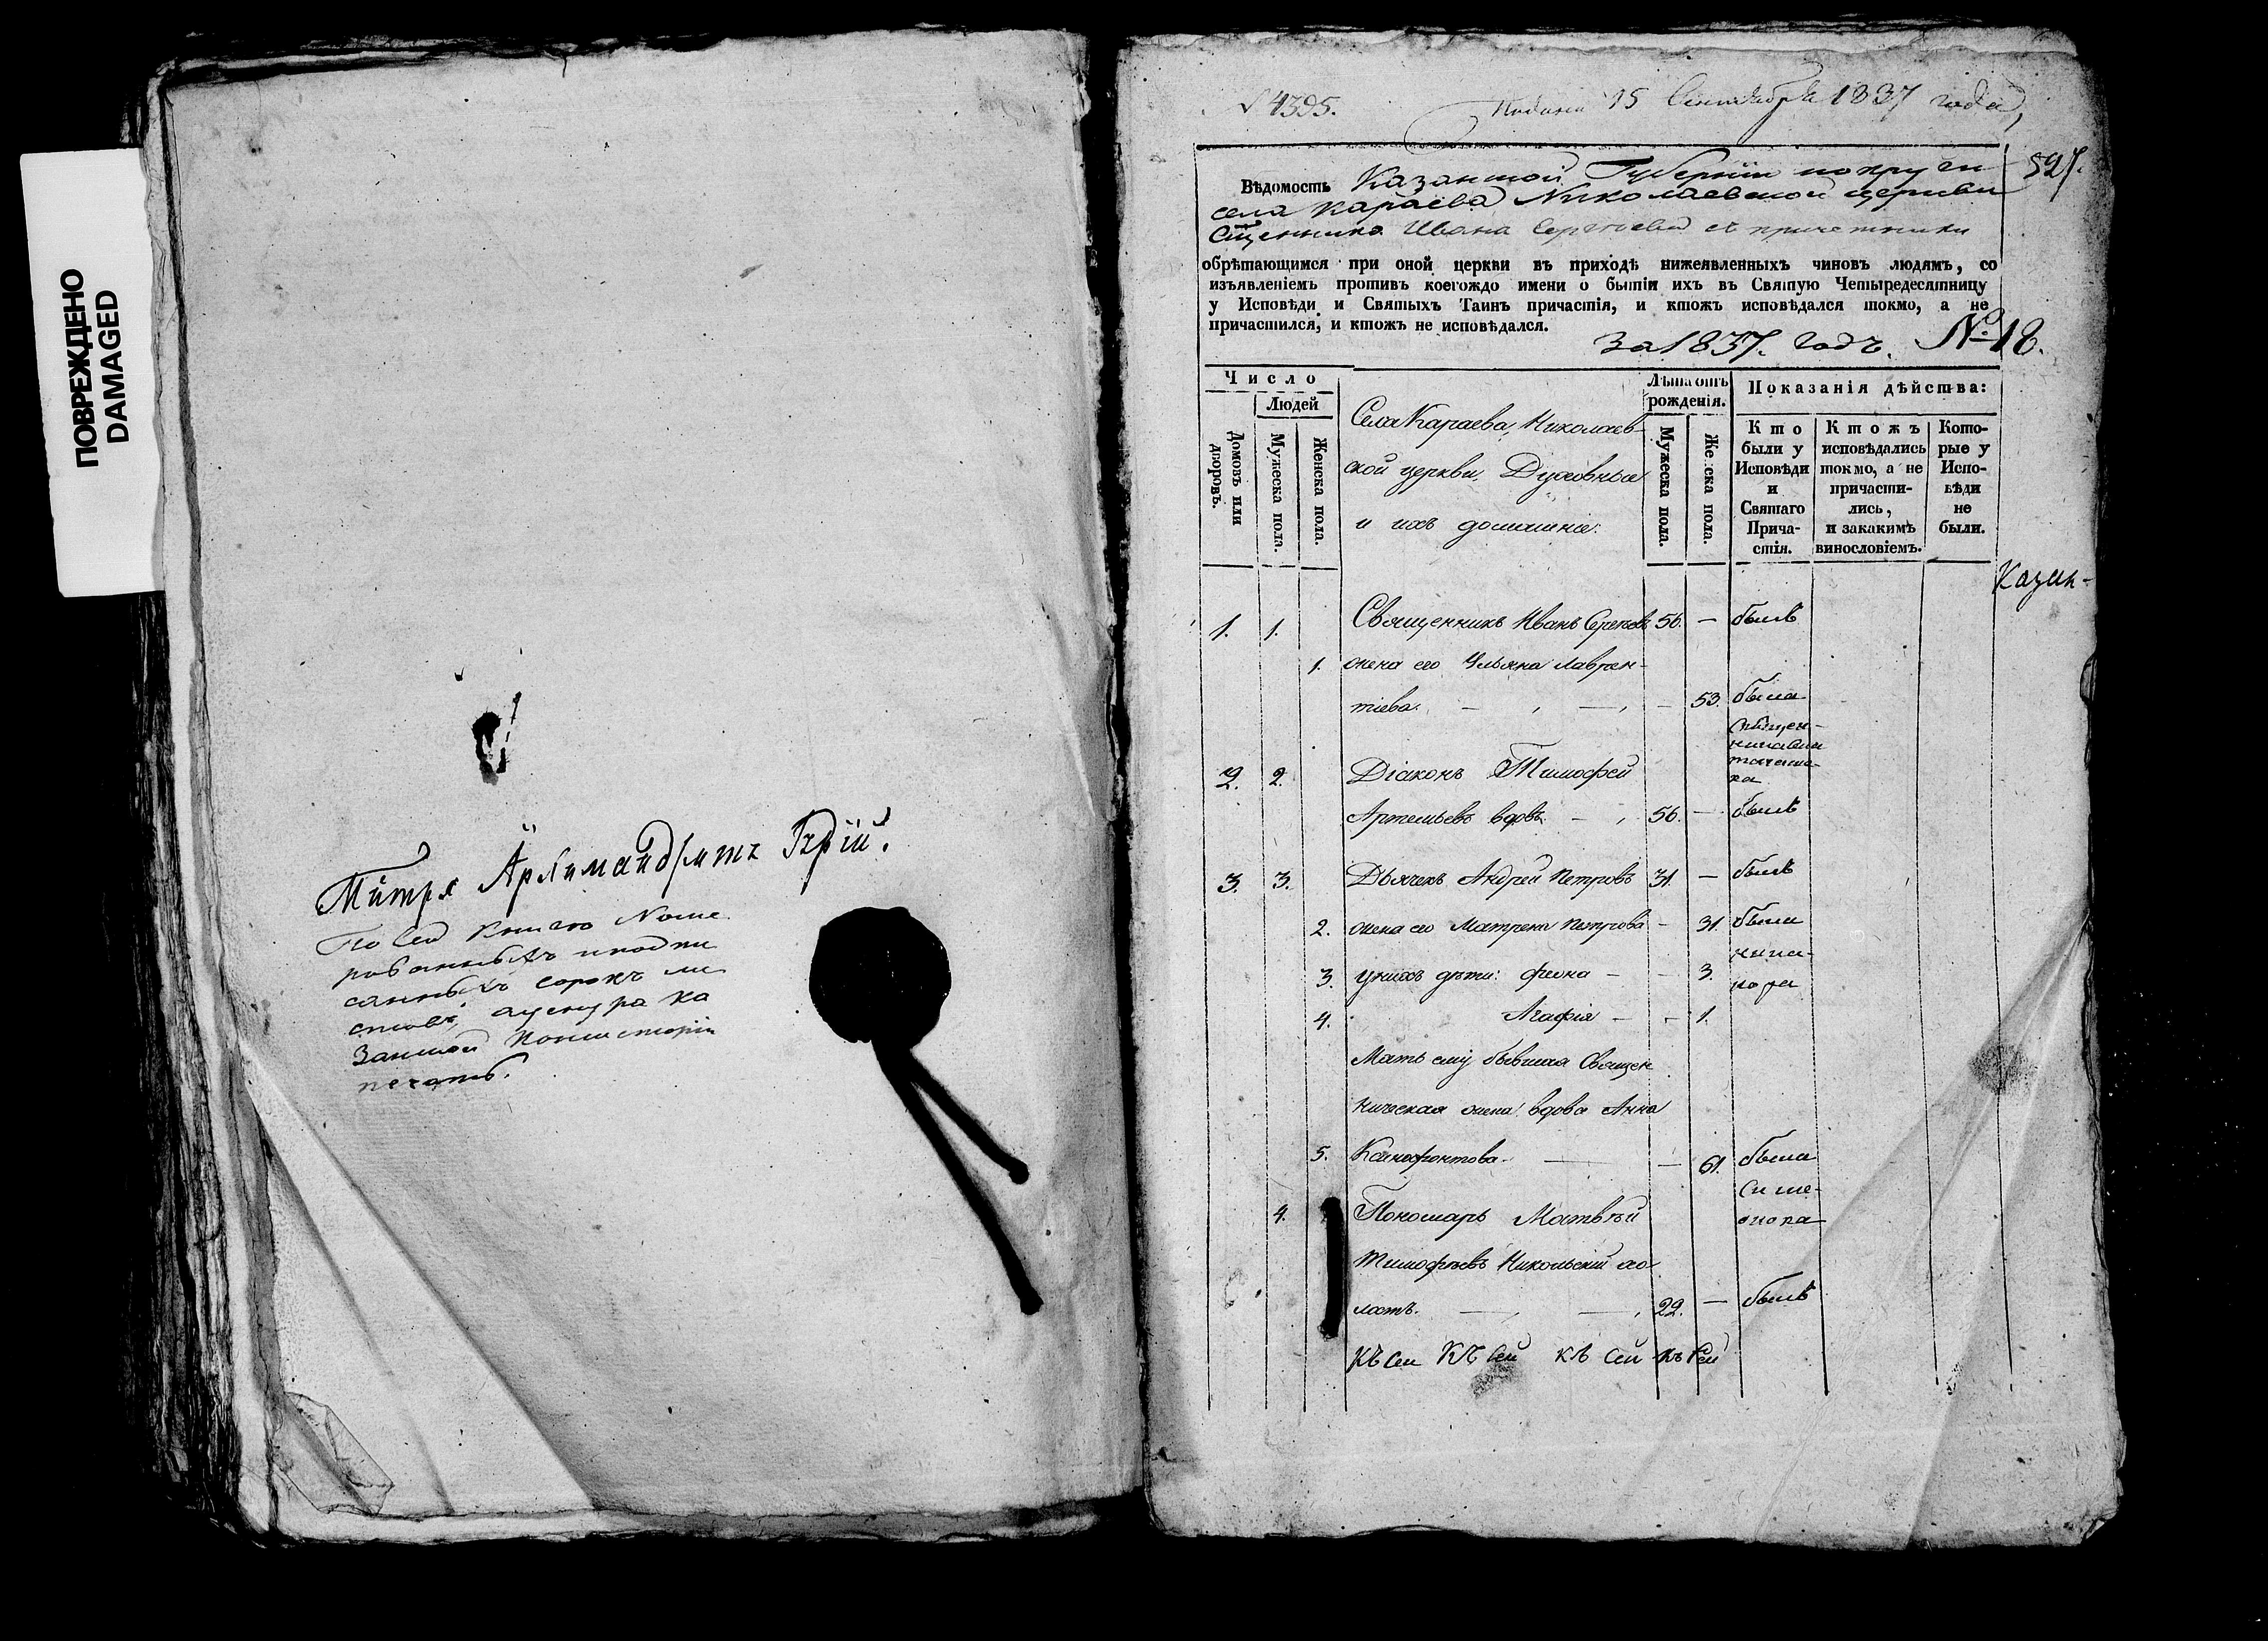 ПОВРЕЖДЕНО
DAMAGED
Архимандритъ Гурій.
По сей книгѣ Номе
рованныхъ и подпи
санныхъ сорокъ ли
стовъ, а у шнура Ка
занской Консисторіи
печать.
№ 4395.
Подана 15 Сентября 1837 года
527.
Вѣдомость Казанской Губерніи по округи
села Караева Николаевской церкви
Священника Ивана Сергѣева съ причетники
обрѣтающимся при оной церкви въ приходѣ нижеявленныхъ чиновъ людямъ, со
изъявленіемъ противъ коегождо имени о бытіи ихъ въ Святую Четыредесятницу
у Исповѣди и Святыхъ Таинъ причастія, и ктожъ исповѣдался токмо, а не
причастился, и ктожъ не исповѣдался.
За 1837. годъ. № 18.
Число
Людей
Домовъ или дворовъ.
Мужеска пола.
Женска пола.
Села Караева, Николаев-
ской церкви, Духовные
и ихъ домашніе:
Лѣта отъ
рожденія.
Мужеска пола.
Женска пола.
Показанія дѣйства:
Кто
были у
Исповѣди
и
Святаго
Прича-
стія.
Ктожъ
исповѣдались
токмо, а не
причасти-
лись,
и закакимъ
винословіемъ.
Кото-
рые у
Испо-
вѣди
не
были.
Казан-
1. 1. Священникъ Иванъ Сергѣевъ 56. — былъ
1. жена его Ульяна Лаврен-
тіева. — — — 53. была
Священ-
2. 2. Діаконъ Тимофей
Артемьевъ вдовъ — 56. — былъ
3. 3. Дьячекъ Андрей Петровъ 31. — былъ
2. жена его Матрена Петрова — 31. была
3. у нихъ дѣти: Фекла — — 3.
4. Агафія — — 1.
Мать ему бывшая Священ
ническая жена вдова Анна
5. Ксенофонтова. — — 61. была
4. Пономарь Матвѣй
Тимофеевъ Никольскій хо
лостъ. — — 22. — былъ
Къ сей Къ сей къ сей къ сей